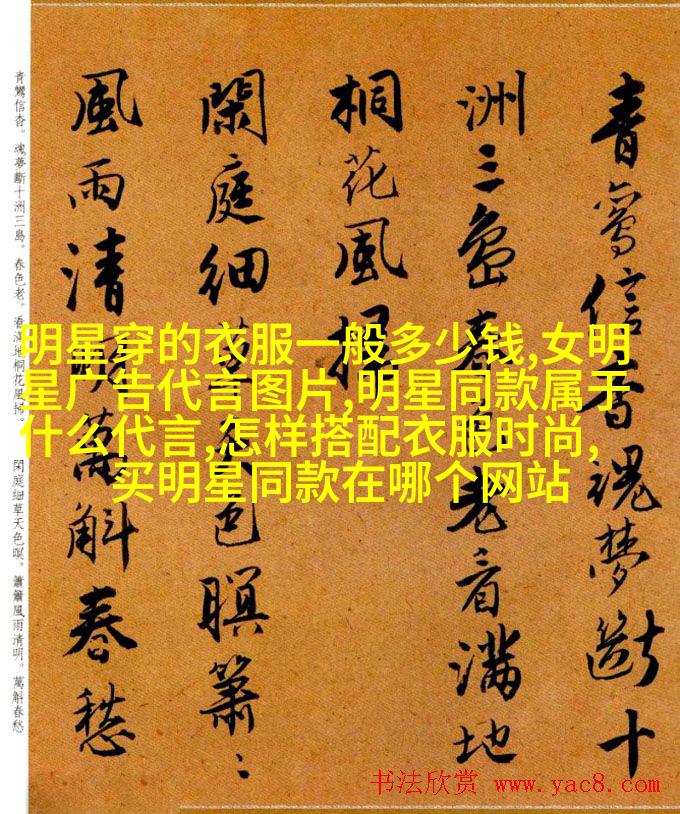 青鸞信杳魂夢斷十
洲三島春色老看滿地
桐花風掃
閑庭細草天色暝簫〻
風雨清明萬斛春愁
青鸞信杳。魂夢斷十洲三島。春色老。看滿地桐花風掃。 閑庭細草天色暝。簫簫風雨清明。萬斛春愁
明星穿的衣服一般多少钱,女明
星广告代言图片,明星同款属于
什么代言,怎样搭配衣服时尚,
买明星同款在哪个网站
书法欣赏 www.yac8.com